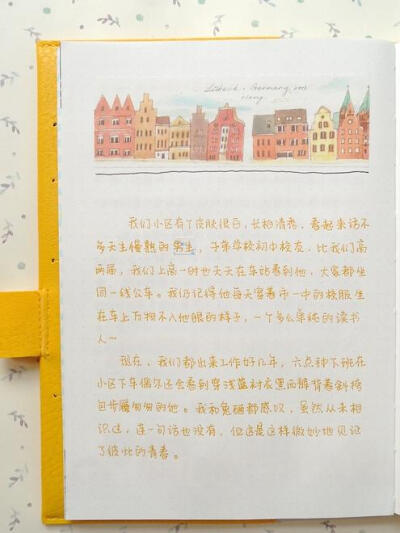 Lübeck · Germany
我们小区有个皮肤很白,长相清秀,看起来话不
多天生慢熟的男生,子弟学校初中校友,比我们高
两届,我们上高一时也天天在车站看到他,大家都坐
同一线公车。我仍记得他每天穿着市一中的校服坐
在车上万物不入他眼的样子,一个多么单纯的读书
人~
现在,我们都出来工作好几年,六点钟下班在
小区下车偶尔还会看到穿浅蓝衬衣黑西裤背着斜挎
包步履匆匆的他。我和兔硒都感叹,虽然从未相
识过,连一句话也没有,但还是这样微妙地见证
了彼此的青春。